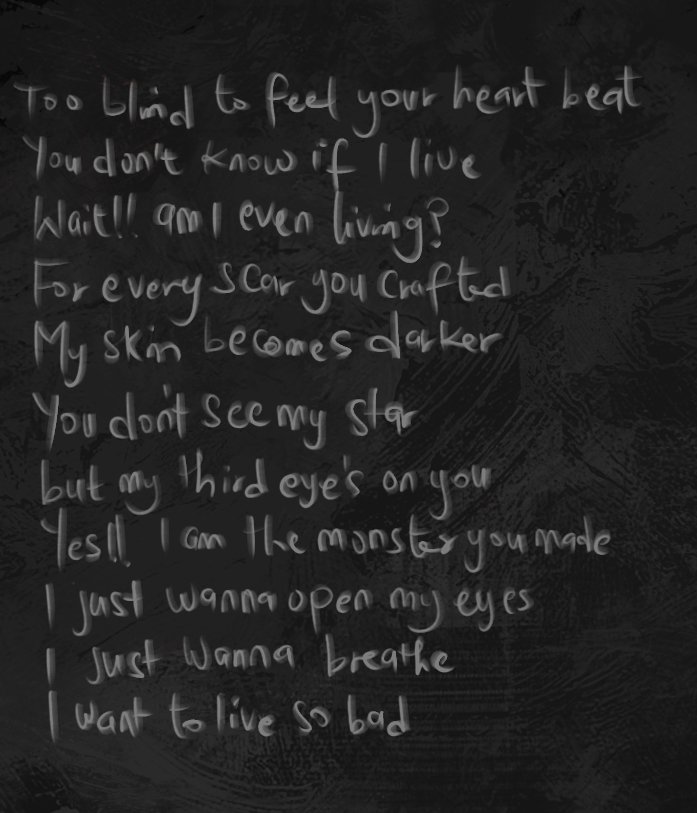 Too blind to feel your heart beat
You don't know if I live
Wait!! am I even living?
For every scar you crafted
My skin becomes darker
You don't see my star
but my third eye's on you
Yes!! I am the monster you made
I just wanna open my eyes
I just wanna breathe
I want to live so bad